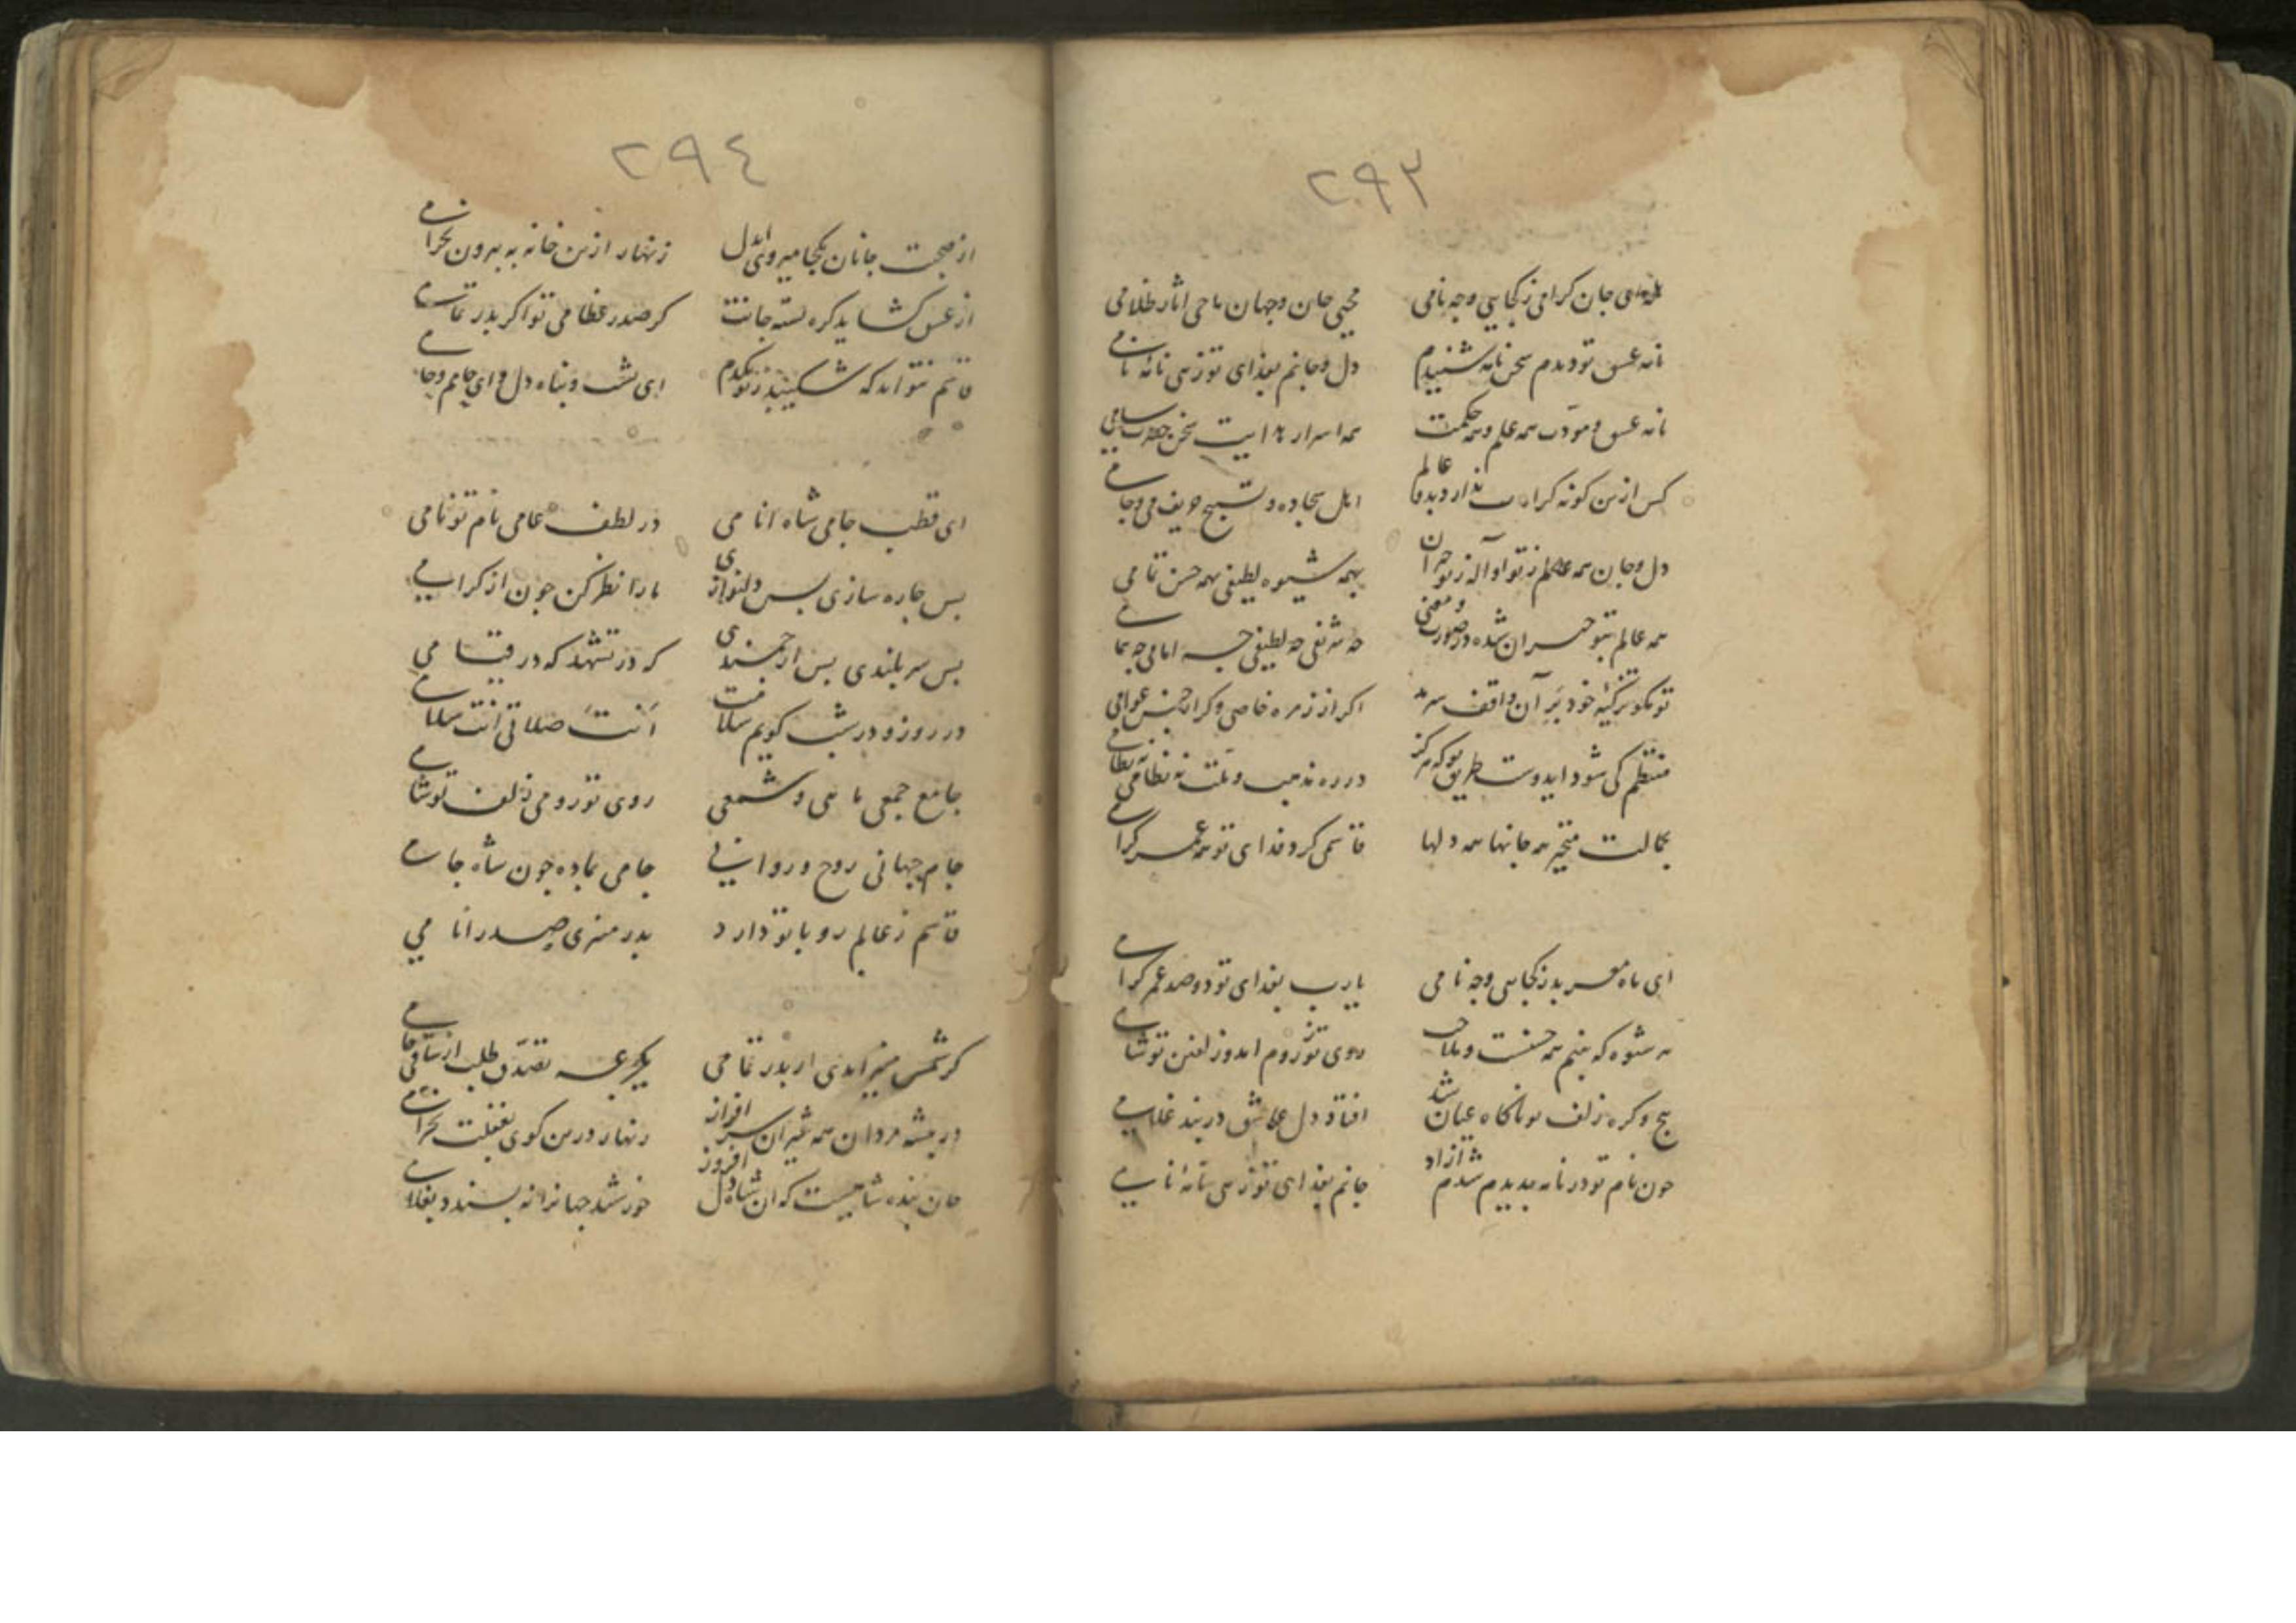 ٢٩٣
جان کرامی ز کجایی و چه نامی محیی جان و جهان ماحی اثار ظلامی
نامه عسق تو دیدم سخن نامه شنیدم دل و جانم بفدای تو زهی نامهٔ نامی
نامه عسق و مودت همه علم و همه حکمت همه اسرار سخن سامی
کس ازین کونه ندارد عالم اهل سجاده و تسبیح حریف می و جامی
دل و جان همه عالم ز تو بهمه شیوه لطیفی بهمه حسن تمامی
همه عالم بتو حیران شده در صورت و معنی چه شریفی چه لطیفی چه امامی چه همامی
تو نکو تزکیهٔ خود بر آن واقف اکر از زمره خاصی و کر از جنس عوامی
منتظم کی شود ایدوست طریق تو که هرکز در ره مذهب و ملت نه نظامی نه نظامی
بکمالت متحیر همه جانها همه دلها قاسمی کرد فدای تو همه عمر کرامی
ای ماه بدر ز کجایی و چه نامی یارب بفدای تو دو صد عمر کرامی
هر شیوه که بینم همه حسنست و ملاحت روی تو ز روم امد و زلفین تو شامی
پیچ و کره زلف تو ناکاه عیان شد افتاد دل عاشق در بند غلامی
چون نام تو در نامه بدیدم شدم آزاد جانم بفدای تو زهی نامهٔ نامی
٢٩٤
از صحبت جانان بکجا میروی ایدل زنهار ازین خانه به بیرون نخرامی
از عسق کشاید کره بسته جانت کر صدر عظامی تو اکر بدر تمامی
قاسم نتواند که شکیبد ز تو یکدم ای پشت و پناه دل و ای جانم و جامی
ای قطب جامی شاه انامی در لطف عامی نام تو نامی
بس چاره سازی بس دلنوازی مارا نظر کن چون از کرامی
بس سربلندی بس ارجمندی که در تشهد که در قیامی
در روز و در شب کویم سلامت اَنتَ صلاتی انت سلامی
جامع جمعی ماهی و شمعی روی تو رومی زلف تو شامی
جام جهانی روح و روانی جامی بماده چون شاه جامی
قاسم ز عالم رو با تو دارد بدر منیری صدر انامی
کر شمس منیر امدی ار بدر تمامی یکجرعه تصدق طلب از ساقی جامی
در بیشه مردان همه شیران سرافراز زنهار درین کوی بغفلت نخرامی
جان بنده شاهیست که ان شاه دل افروز خورشید جهانرا نه پسندد بغلامی